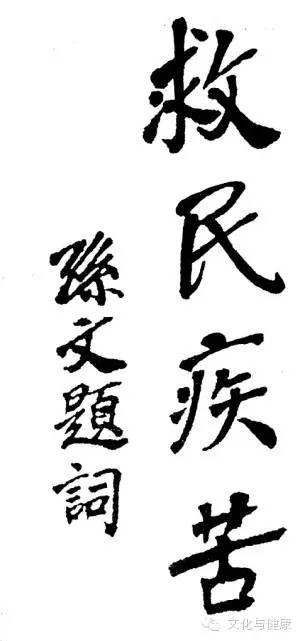 救民疾苦
孫文題詞
文化与健康